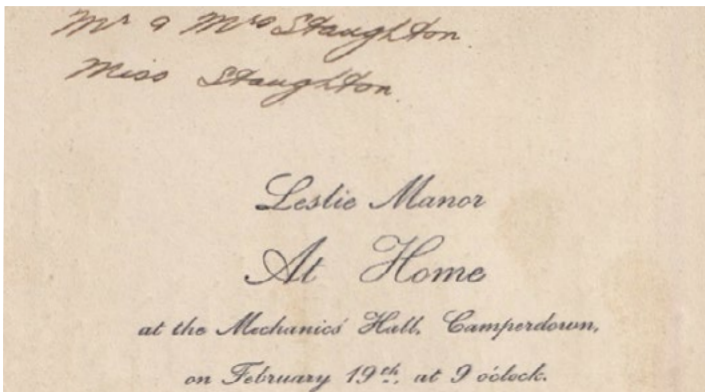 Mr & Mrs Staughton
Miss Staughton.
Leslie Manor
At Home
at the Mechanics' Hall, Camperdown,
on February 19th, at 9 o'clock.